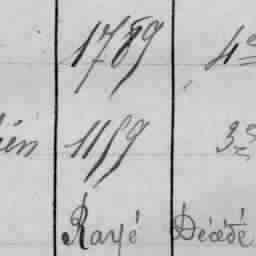 1789 4e
ién 1159 3e
Rayé Décédé